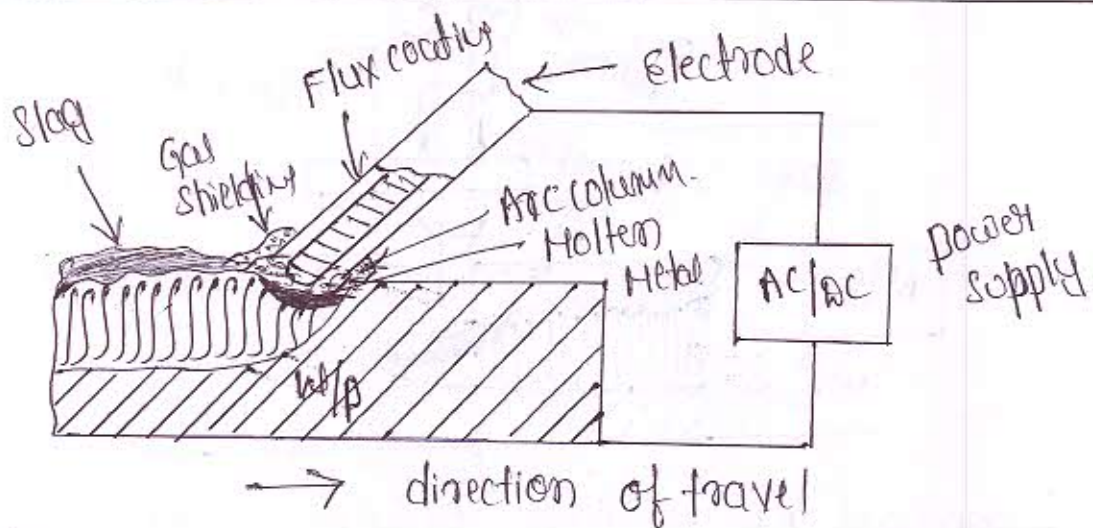 Flux coating
Electrode
Slag
Gas
Shielding
Arc column.
Molten
Metal
AC/DC
power
supply
w/p
direction of travel